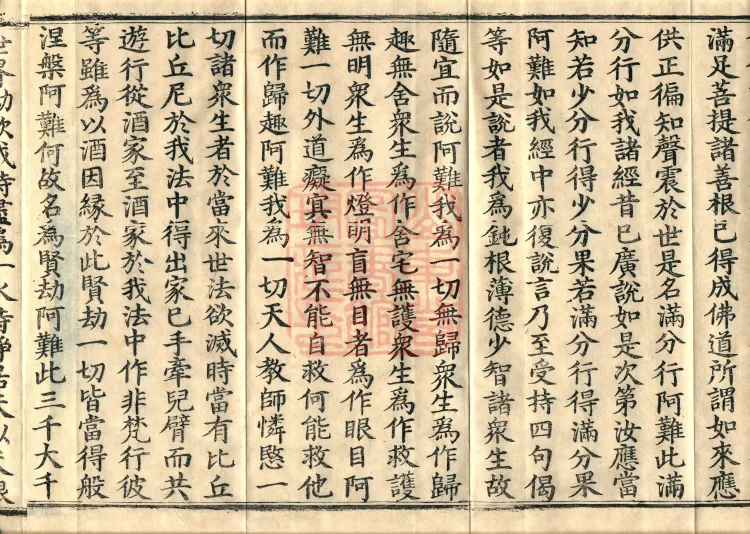 滿足菩提諸善根已得成佛道所謂如來應
供正徧知聲震於世是名滿分行阿難此滿
分行如我諸經昔已廣說如是次第汝應當
知若少分行得少分果若滿分行得滿分果
阿難如我經中亦復說言乃至受持四句偈
等如是說者我為鈍根薄德少智諸衆生故
隨宜而說阿難我為一切無歸衆生為作歸
趣無舍衆生為作舍宅無護衆生為作救護
無明衆生為作燈明盲無目者為作眼目阿
難一切外道癡冥無智不能自救何能救他
而作歸趣阿難我為一切天人教師憐愍一
切諸衆生者於當來世法欲滅時當有比丘
比丘尼於我法中得出家已手牽兒臂而共
遊行從酒家至酒家於我法中作非梵行彼
等雖為以酒因緣於此賢劫一切皆當得般
涅槃阿難何故名為賢劫阿難此三千大千
世界劫欲成時盡為一水時淨居天以天眼